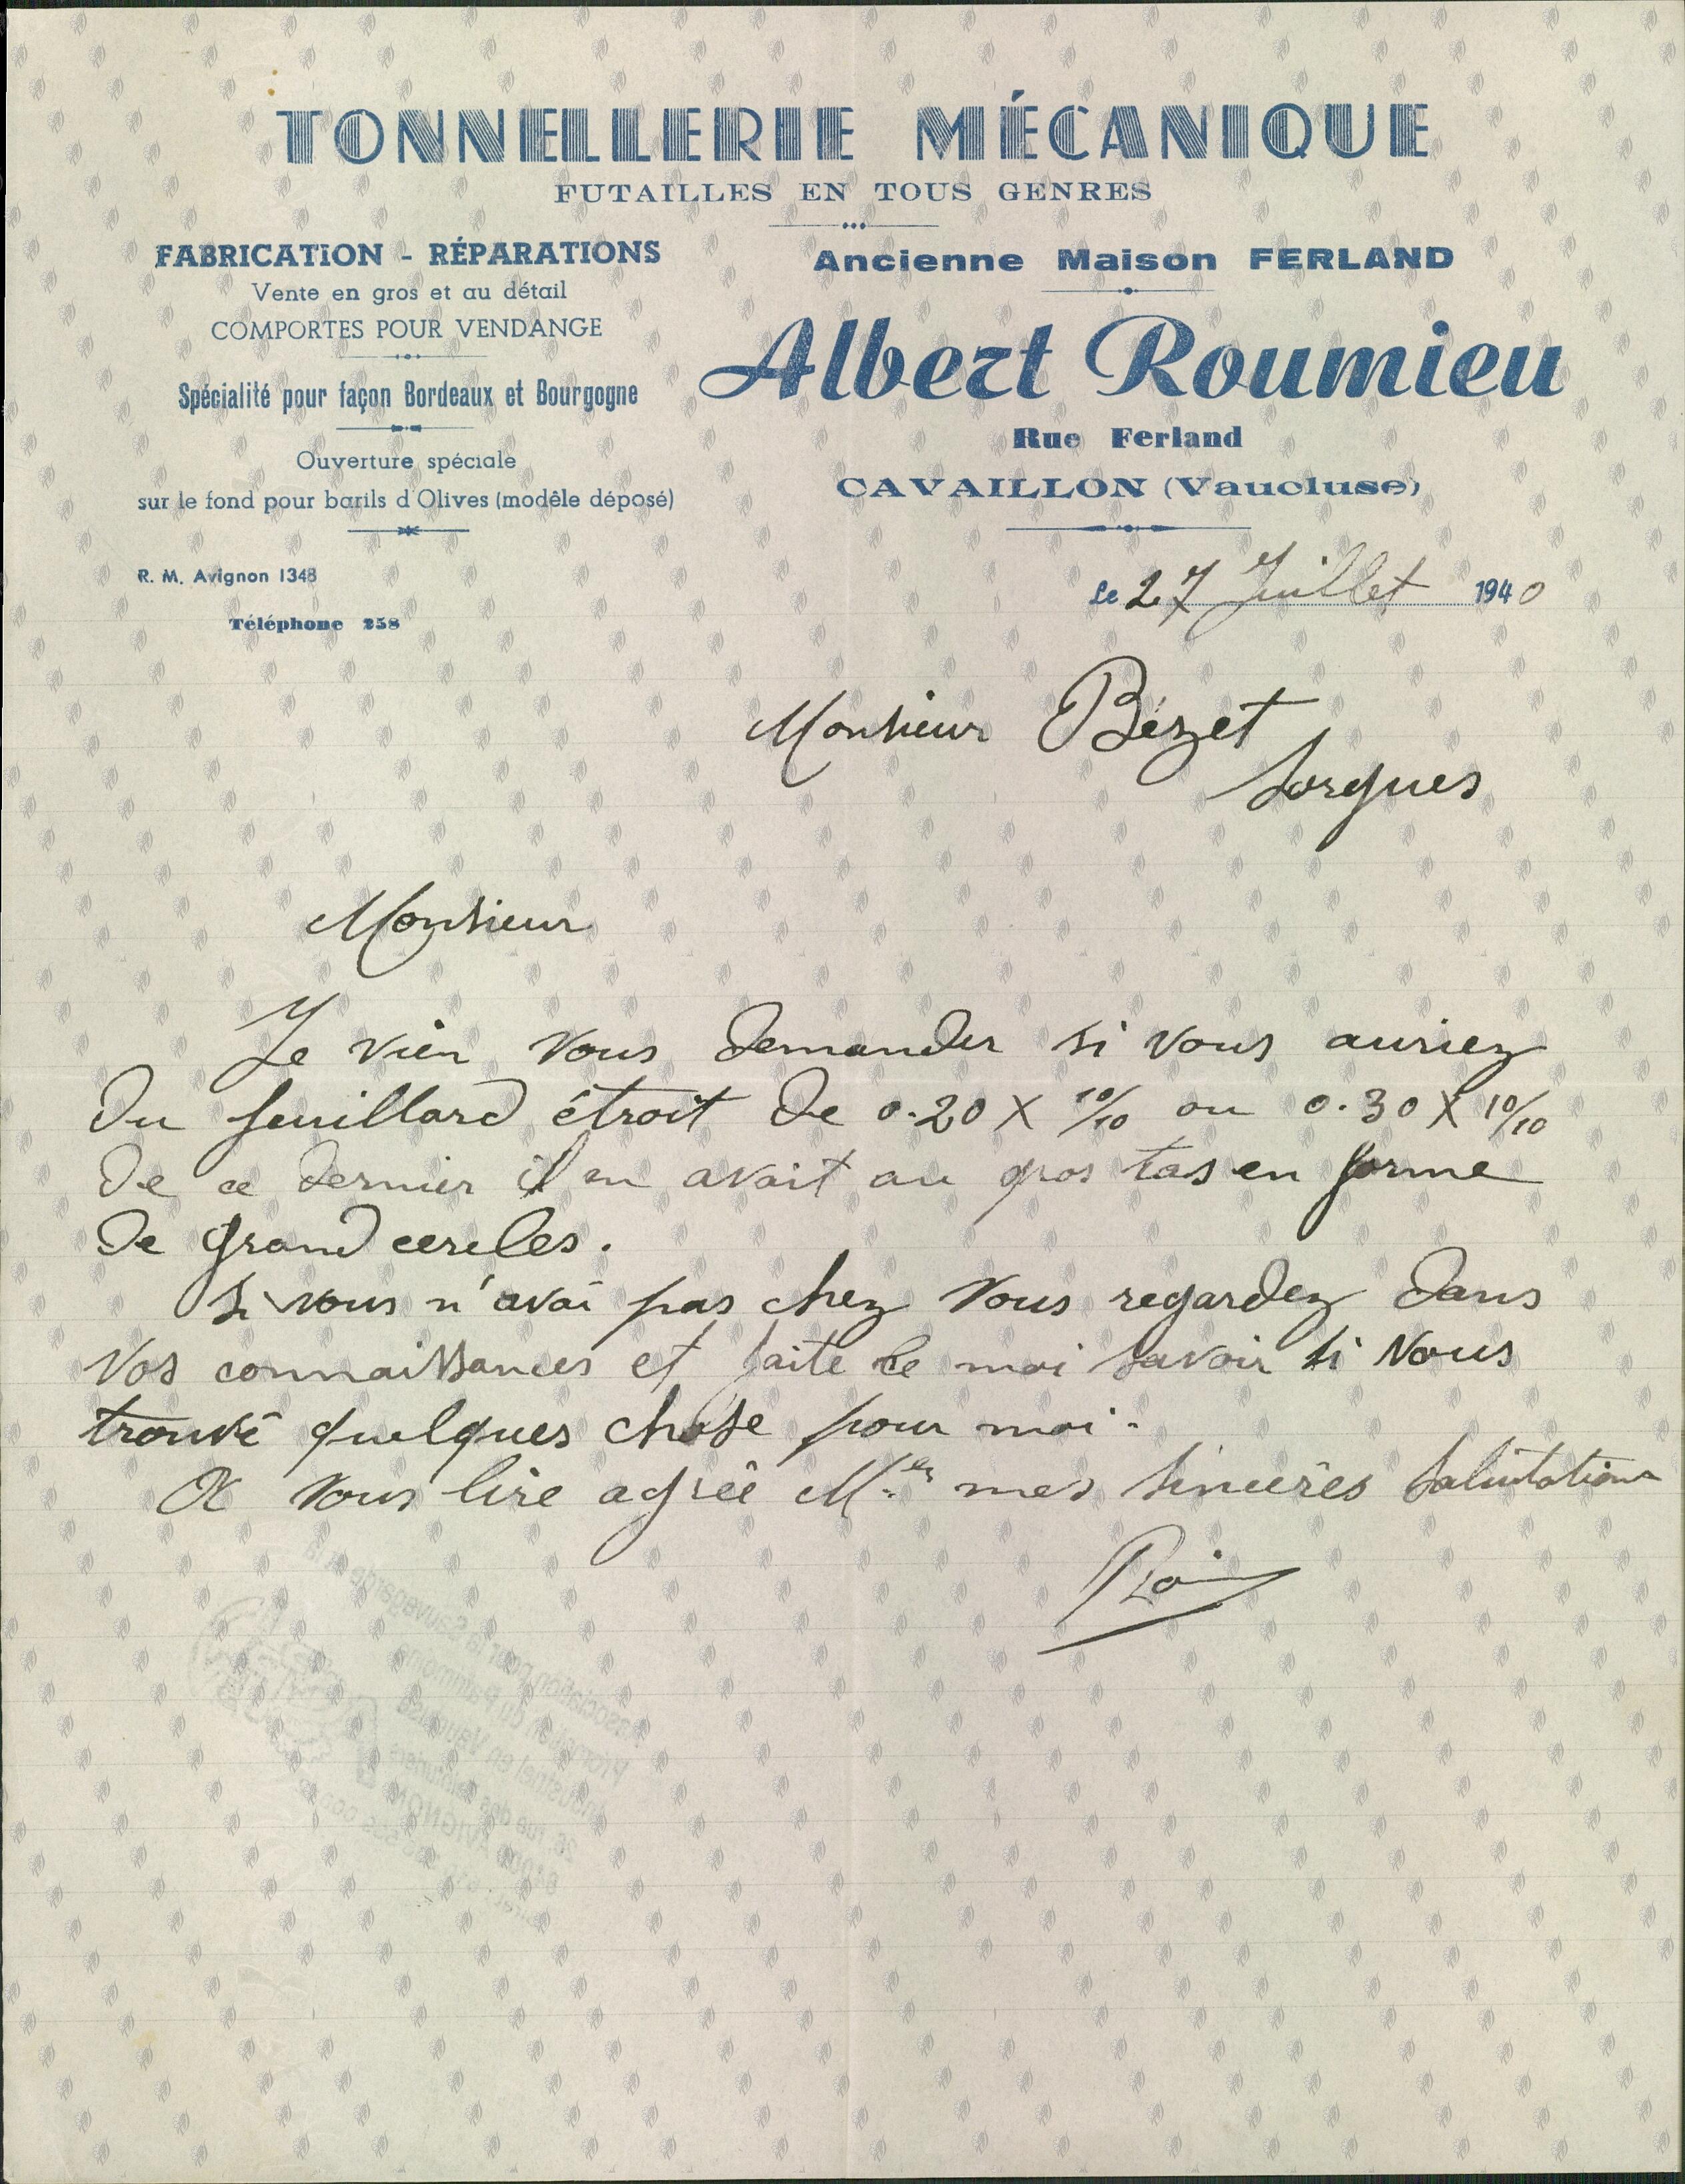 TONNELLERIE MÉCANIQUE
FUTAILLES EN TOUS GENRES
FABRICATION - RÉPARATIONS
Vente en gros et au détail
COMPORTES POUR VENDANGE
Spécialité pour façon Bordeaux et Bourgogne
Ouverture spéciale
sur le fond pour barils d'Olives (modèle déposé)
R. M. Avignon 1348
Téléphone 258
Ancienne Maison FERLAND
Albert Roumieu
Rue Ferland
CAVAILLON (Vaucluse)
Le 27 Juillet 1940
Monsieur Bézet
Sorgues
Monsieur
Je vien vous demander si vous auriez
du feuillard étroit de 0.20 X 10/10 ou 0.30 X 10/10
de ce dernier il en avait au gros tas en forme
de grand cercles.
Si vous n'avai pas chez vous regardez dans
vos connaissances et faite le moi savoir si vous
trouvé quelques chose pour moi.
A vous lire agréé M. mes sincères salutations
association pour la Sauvegarde et la
Promotion du Patrimoine
Industriel en Vaucluse
rue des teinturiers
84000 AVIGNON